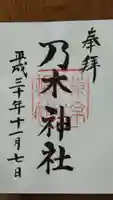 奉拝
乃木神社
平成三十年十一月七日